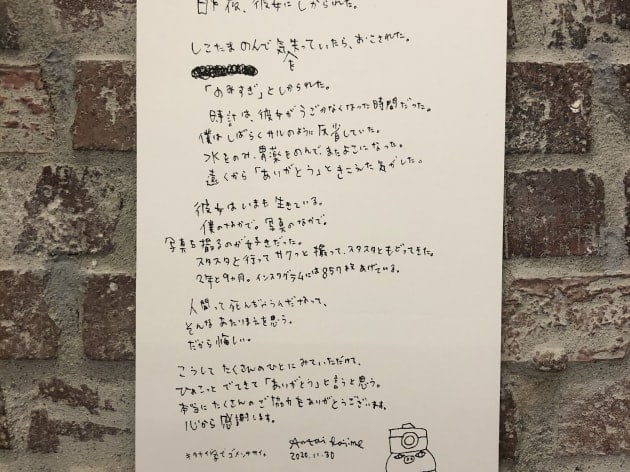 昨夜、彼女にしかられた。
しこたまのんで気を失っていたら、おこされた。
「のみすぎ」としかられた。
時計は、彼女がうごかなくなった時間だった。
僕はしばらくサルのように反省していた。
水をのみ、胃薬をのんで、またよこになった。
遠くから「ありがとう」ときこえた気がした。
彼女はいまも生きている。
僕のなかで。写真のなかで。
写真を撮るのが好きだった。
スタスタと行ってサクっと撮って、スタスタともどってきた。
2年と9ヵ月。インスタグラムには857枚あげている。
人間って死んじゃうんだなって、
そんなあたりまえを思う。
だから悔しい。
こうしてたくさんのひとにみていただけて、
ひょこっとでてきて「ありがとう」と言うと思う。
本当にたくさんのご協力をありがとうございます。
心から感謝します。
キタナイ字でゴメンナサイ。
2020.11.30